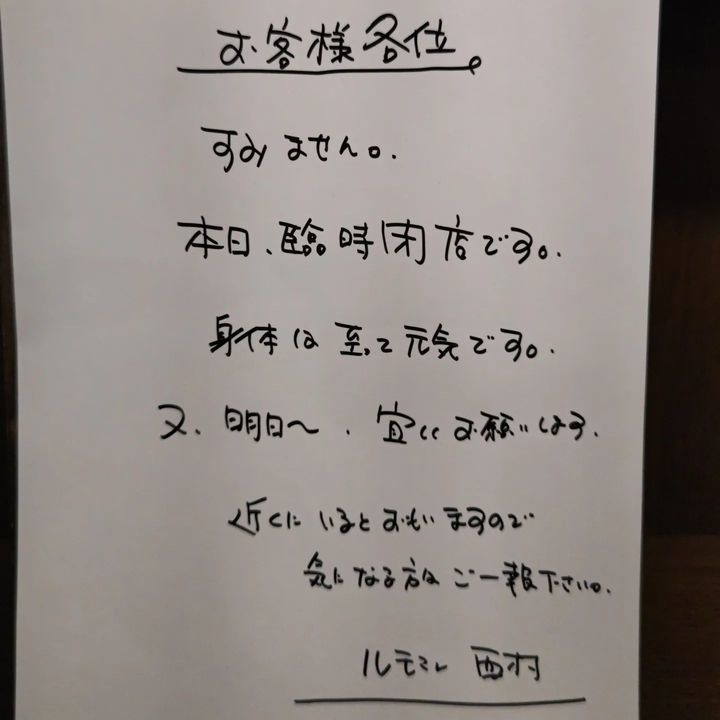 お客様各位。
すみません。
本日、臨時閉店です。
身体は至って元気です。
又、明日〜、宜しくお願いします。
近くにいるとおもいますので
気になる方はご一報下さい。
西村